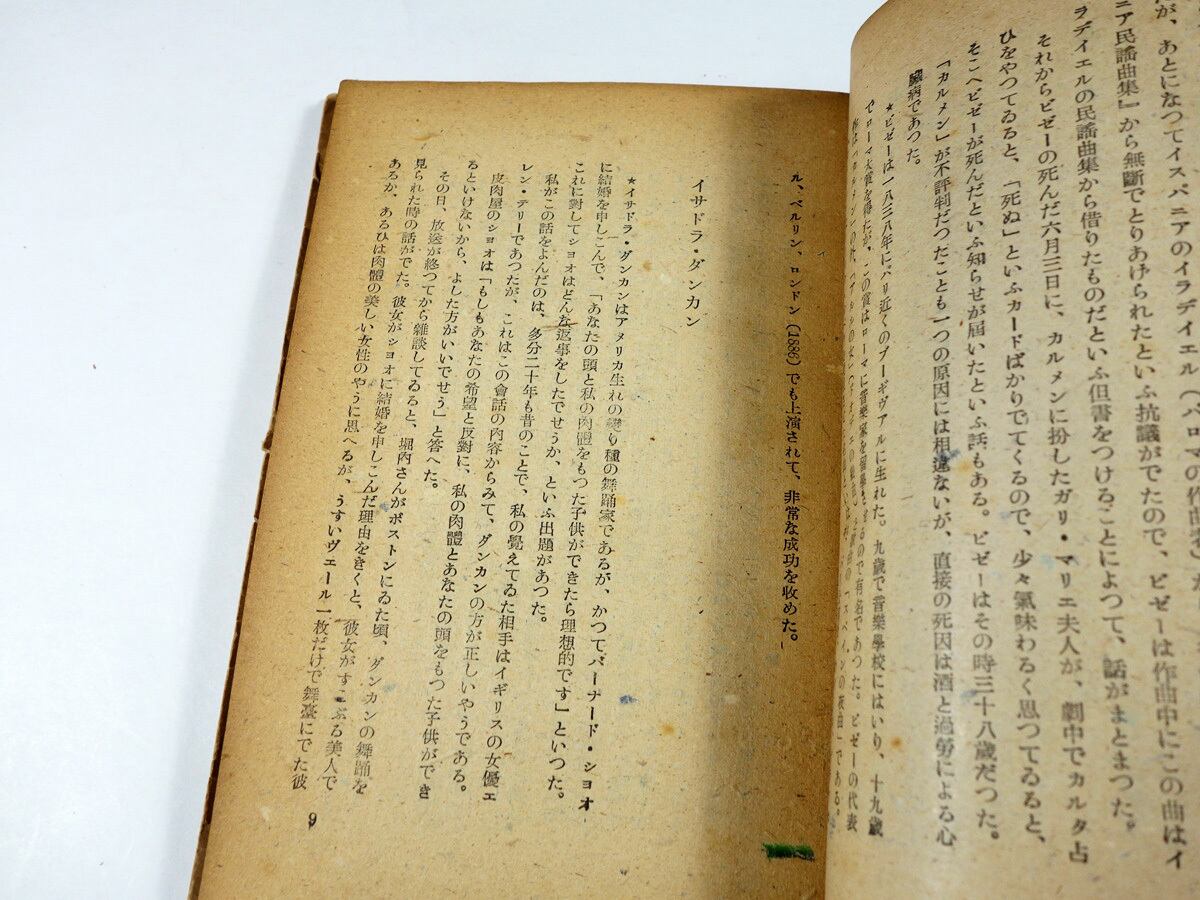 が、あとになつてイスパニアのイラデイエル(パロマの作曲者)
ニア民謡曲集』から無斷でとりあげられたといふ抗議がでたので、ビゼーは作曲中にこの曲はイ
ラデイエルの民謡曲集から借りたものだといふ但書をつけることによつて、話がまとまつた。
それからビゼーの死んだ六月三日に、カルメンに扮したガリ・マリエ夫人が、劇中でカルタ占
ひをやつてゐると、「死ぬ」といふカードばかりでてくるので、少々氣味わるく思つてゐると、
そこへビゼーが死んだといふ知らせが届いたといふ話もある。ビゼーはその時三十八歳だつた。
「カルメン」が不評判だつたことも一つの原因には相違ないが、直接の死因は酒と過勞による心
臟病であつた。
★ビゼーは一八三八年にパリ近くのブーギヴアルに生れた。九歳で音樂學校にはいり、十九歳
でローマ大賞を得たが、この賞はローマに音樂家を留學させるので有名であつた。ビゼーの代表
である。
ル、ベルリン、ロンドン(1886)でも上演されて、非常な成功を收めた。
イサドラ・ダンカン
★イサドラ・ダンカンはアメリカ生れの變り種の舞踊家であるが、かつてバーナード・シヨオ
に結婚を申しこんで、「あなたの頭と私の肉體をもつた子供ができたら理想的です」といつた。
これに對してシヨオはどんな返事をしたでせうか、といふ出題があつた。
私がこの話をよんだのは、多分二十年も昔のことで、私の覺えてゐた相手はイギリスの女優エ
レン・テリーであつたが、これはこの會話の内容からみて、ダンカンの方が正しいやうである。
皮肉屋のシヨオは「もしもあなたの希望と反對に、私の肉體とあなたの頭をもつた子供ができ
るといけないから、よした方がいいでせう」と答へた。
その日、放送が終つてから雜談してゐると、堀内さんがボストンにゐた頃、ダンカンの舞踊を
見られた時の話がでた。彼女がシヨオに結婚を申しこんだ理由をきくと、彼女がすこぶる美人で
あるか、あるひは肉體の美しい女性のやうに思へるが、うすいヴエール一枚だけで舞臺にでた彼
9